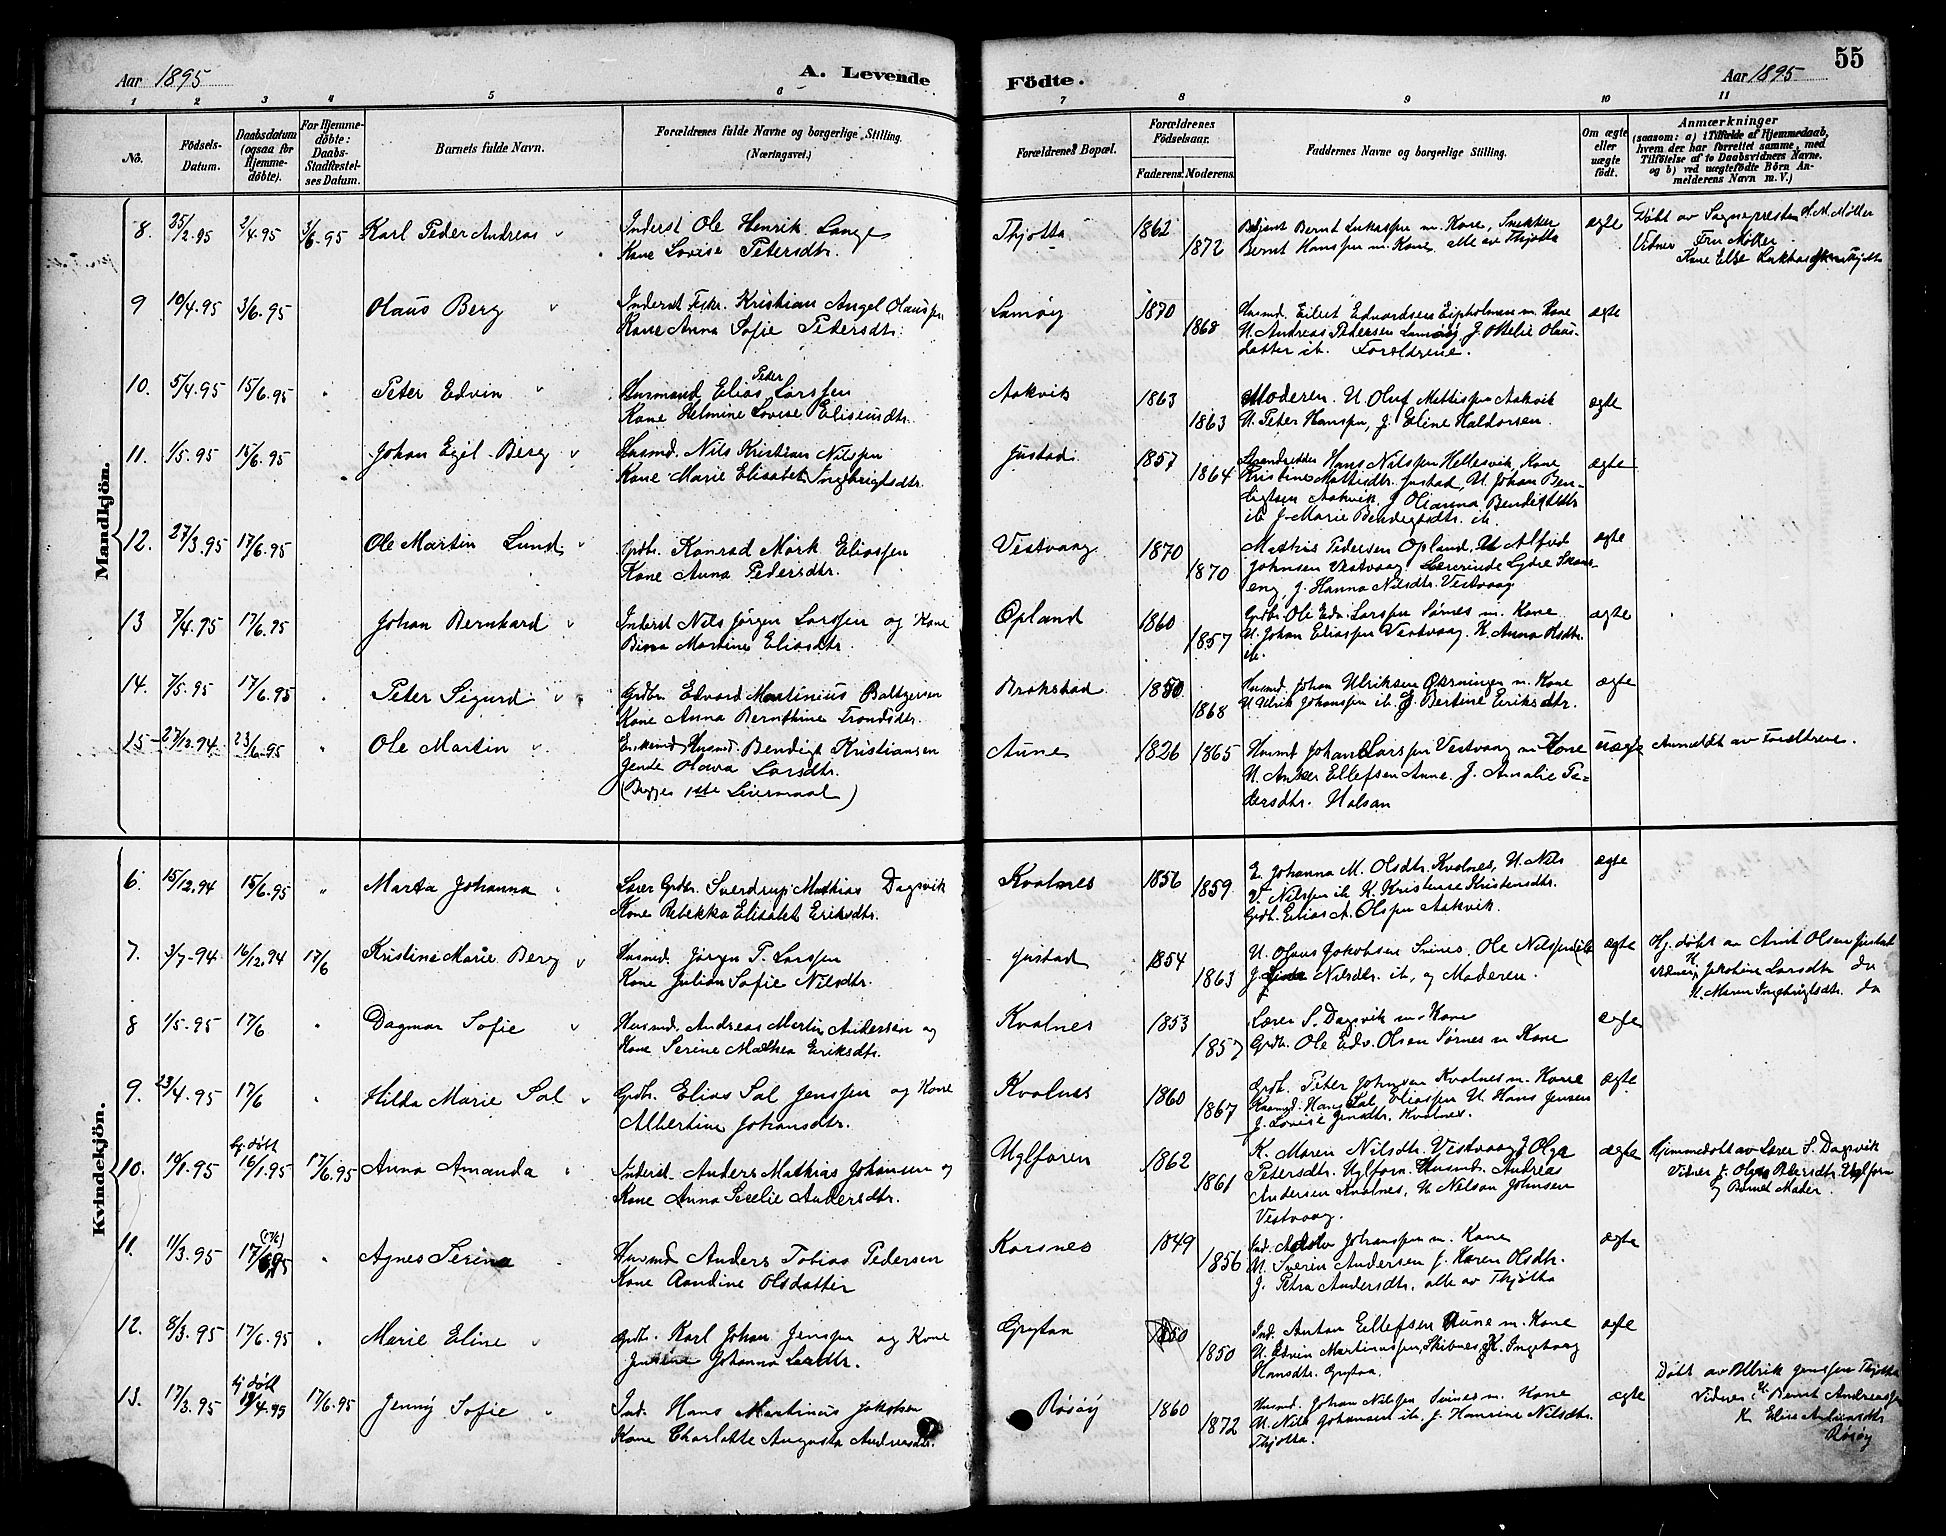 Aar 1895
A. Levende
1 2 3 4 5 6
No.
Födsels-
Datum.
Daabsdatum
(ogsaa for
Hjemme-
döbte).
For Hjemme-
döbte:
Daabs-
Stadfæstel-
ses Datum.
Barnets fulde Navn.
Forældrenes fulde Navne og borgerlige Stilling.
(Næringsvei.)
Mandkjön.
8. 25/2.95 2/4.95 3/6.95 Karl Peder Andreas " Inderst Ole Henrik Lange
Kone Lovise Petersdtr.
9 10/4.95 3/6.95 Olaus Berg " Inderst Fisk. Kristian Angel Olaussen
Kone Anna Sofie Pedersdtr.
10. 5/4.95 15/6.95 " Peter Edvin " Husmand Elias Peder Larssen
Kone Helmine Lovise Eliseusdtr.
11. 1/5.95 15/6.95 Johan Egil Berg " Husmd. Nils Kristian Nilssen
Kone Marie Elisabet Ingebrigtsdtr.
12. 27/3.95 17/6.95 Ole Martin Lund " Grdbr. Konrad Mørk Eliassen
Kone Anna Pedersdtr.
13 7/4.95 17/6.95 Johan Bernhard " Inderst Nils Jørgen Larssen og Kone
Martine Eliasdtr.
14. 7/5.95 17/6.95 Peter Sigurd " Grdbr. Edvard Martinius Baltzersen
Kone Anna Bernthine Trondsdtr.
15 27/12.94 23/6.95 " Ole Martin " Enkemd. Husmd. Bendigt Kristiansen
Pende Olava Larsdtr.
(Begges 1ste Leiermaal)
Kvindekjön.
6. 15/12.94 15/6.95 " Marta Johanna " Lærer Grdbr. Sverdrup Mathias Dagsvik
Kone Rebekka Elisabet Eriksdtr.
7. 3/7.94 16/12.94 17/6 Kristine Marie Berg " Husmd. Jørgen P. Larssen
Kone Julian Sofie Nilsdtr.
8 1/5.95 17/6 " Dagmar Sofie " Husmd. Andreas Martin Andersen og
Kone Serine Mathea Eriksdtr.
9. 23/4.95 17/6 " Hilda Marie Sal " Grdbr. Elias Sal Jenssen og Kone
Albertine Johansdtr.
hj. døbt
10. 10/1.95 16/1.95 17/6.95 Anna Amanda " Inderst Anders Mathias Johansen og
Kone Anna Secelie Andersdtr.
11. 11/3.95 " Agnes Serina " Husmd Anders Tobias Pedersen
Kone Randine Olsdatter
12. 8/3.95 17/6.95 " Marie Eline " Grdbr. Karl Johan Jenssen og Kone
Johanna
hj. døbt
13. 17/3.95 17/6.95 Jenny Sofie " Ind. Hans Martinus Jakobsen
Kone Charlotte Augusta Andreasdtr.
Födte.
Aar 1895
55
7 8 9 10 11
Forældrenes Bopæl.
Forældrenes
Födselsaar.
Faderens. Moderens.
Faddernes Navne og borgerlige Stilling.
Om ægte
eller
uægte
födt.
Anmærkninger
(saasom: a) i Tilfælde af Hjemmedaab,
hvem der har forrettet samme, med
Tilföielse af to Daabsvidners Navne.
og b) ved uægtefödte Börn An-
melderens Navn m. V.)
Thjotta 1862 1872 Bernt Lukassen m. Kone, Snekker
Bernt Hanssen m. Kone alle av Thjotta ægte
Døbt av Sognepresten H. M. Møller
Vidner Fru Møller
Kone Else
Lamøy 1870 1868 Husmd. Eilert Edvardsen m. Kone
U. Andreas Pedersen Lamøy, J. Otelie Olaus-
datter ib. Foreldrene. ægte
Aakvik 1863 1863 Moderen. U. Oluf Mattissen Aakvik
U. Peter Hanssen, J. Eline Haldorsen. ægte
Justad 1857 1864 Hans Nilssen Hellesvik, Kone
Kristine Mattisdtr. Justad, U. Johan Ben-
digtsen Aakvik, J. Olianna Bendigtsdtr.
ib. J. Marie Bendigtsdtr. ib. ægte
Vestvaag 1870 1870 Mathis Pedersen Opland, U. Alfred
Johnsen Vestvaag, Lærerinde
J. Hanna Nilsdtr. Vestvaag ægte
Opland 1860 1857 Grdbr. Ole Edv. Larssen Sørnes m. Kone
U. Johan Eliassen Vestvaag. K. Anna Olsdtr.
ib. ægte
Brokstad 1868 Husmd. Johan Ulriksen m. Kone
U. Ulrik Johanssen ib. J. Bertine Eriksdtr. ægte
Aune 1826 1865 Husmd Johan Larssen Vestvaag m Kone
U. Ellefsen Aune. J. Amalie Pe-
dersdtr. Halsan uægte Anmeldt av Foreldrene.
Kvalnes 1856 1859 E. Johanna M. Olsdtr. Kvalnes, U. Nils
V. Nilssen ib. K. Kristense Kristensdtr.
Grdb. Elias A. Olssen Aakvik. ægte
Justad 1854 1863 U. Olaus Jakobsen Svines. Ole Nilssen ib
J. Nilsdtr. ib, og Moderen. ægte
Hj. døbt av Arnt Olsen Justad
Vidner Jakobine Larsdtr do
U. Maren Ingebrigtsdtr. do
Kvalnes 1853 1857 Lærer S. Dagsvik m. Kone
Grdb. Ole Edv. Olsen Sørnes m Kone ægte
Kvalnes 1860 1867 Grdb. Peter Johnsen Kvalnes m. Kone
Hans Sal Eliassen U. Hans Jensen
J. Lovise Jensdtr. Kvalnes. ægte
Uglforen 1862 1861 K. Maren Nilsdtr. Vestvaag J. Olga
Petersdtr. Uglforn. Husmd. Andreas
Andersen Kvalnes, U Nelson Johnsen
Vestvaag. ægte
Hjemmedøbt av Lærer S. Dagsvik
Vidner J. Olga Petersdtr. Uglforn
og Barnets Moder.
Korsnes 1849 1856 Ind. Johanssen m. Kone
U. Sverin Andersen J. Karen Olsdtr.
J. Petra Andersdtr. alle av Thjøtta ægte
Grytan 1850 Ind. Anton Ellefsen Aune m. Kone
U. Edvin Martinussen, Skibnes, K. Ingeborg
Hansdtr. Grytan. ægte
Røsøy 1860 1872 Husmd. Johan Nilssen Svines m. Kone
U. Nils Johansen ib, J. Hansine Nilsdtr.
Thjøtta. ægte
Døbt av Ulrik Jenssen Thjøtta
Vidner: Bernt Andreassen
K. Elise Andreasdtr
Røsøy